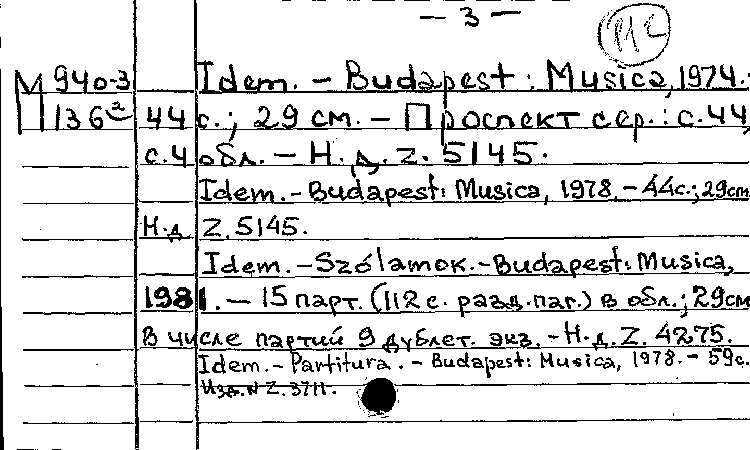 — 3 —
М 940-3 Idem. — Budapest : Musica, 1974.
136² 44 с. ; 29 см. — Проспект сер.: с.44,
с.4 обл. — Н.д. Z. 5145.
Idem. — Budapest: Musica, 1978. — 44с.; 29см
Н.д Z. 5145.
Idem. — Szólamok. — Budapest: Musica,
1981. — 15 парт. (112 с. разд. паг.) в обл.; 29см
В числе партий 9 дублет. экз. — Н.д. Z. 4275.
Idem. — Partitura. — Budapest: Musica, 1978. — 59с.
Изд. N Z. 3711.